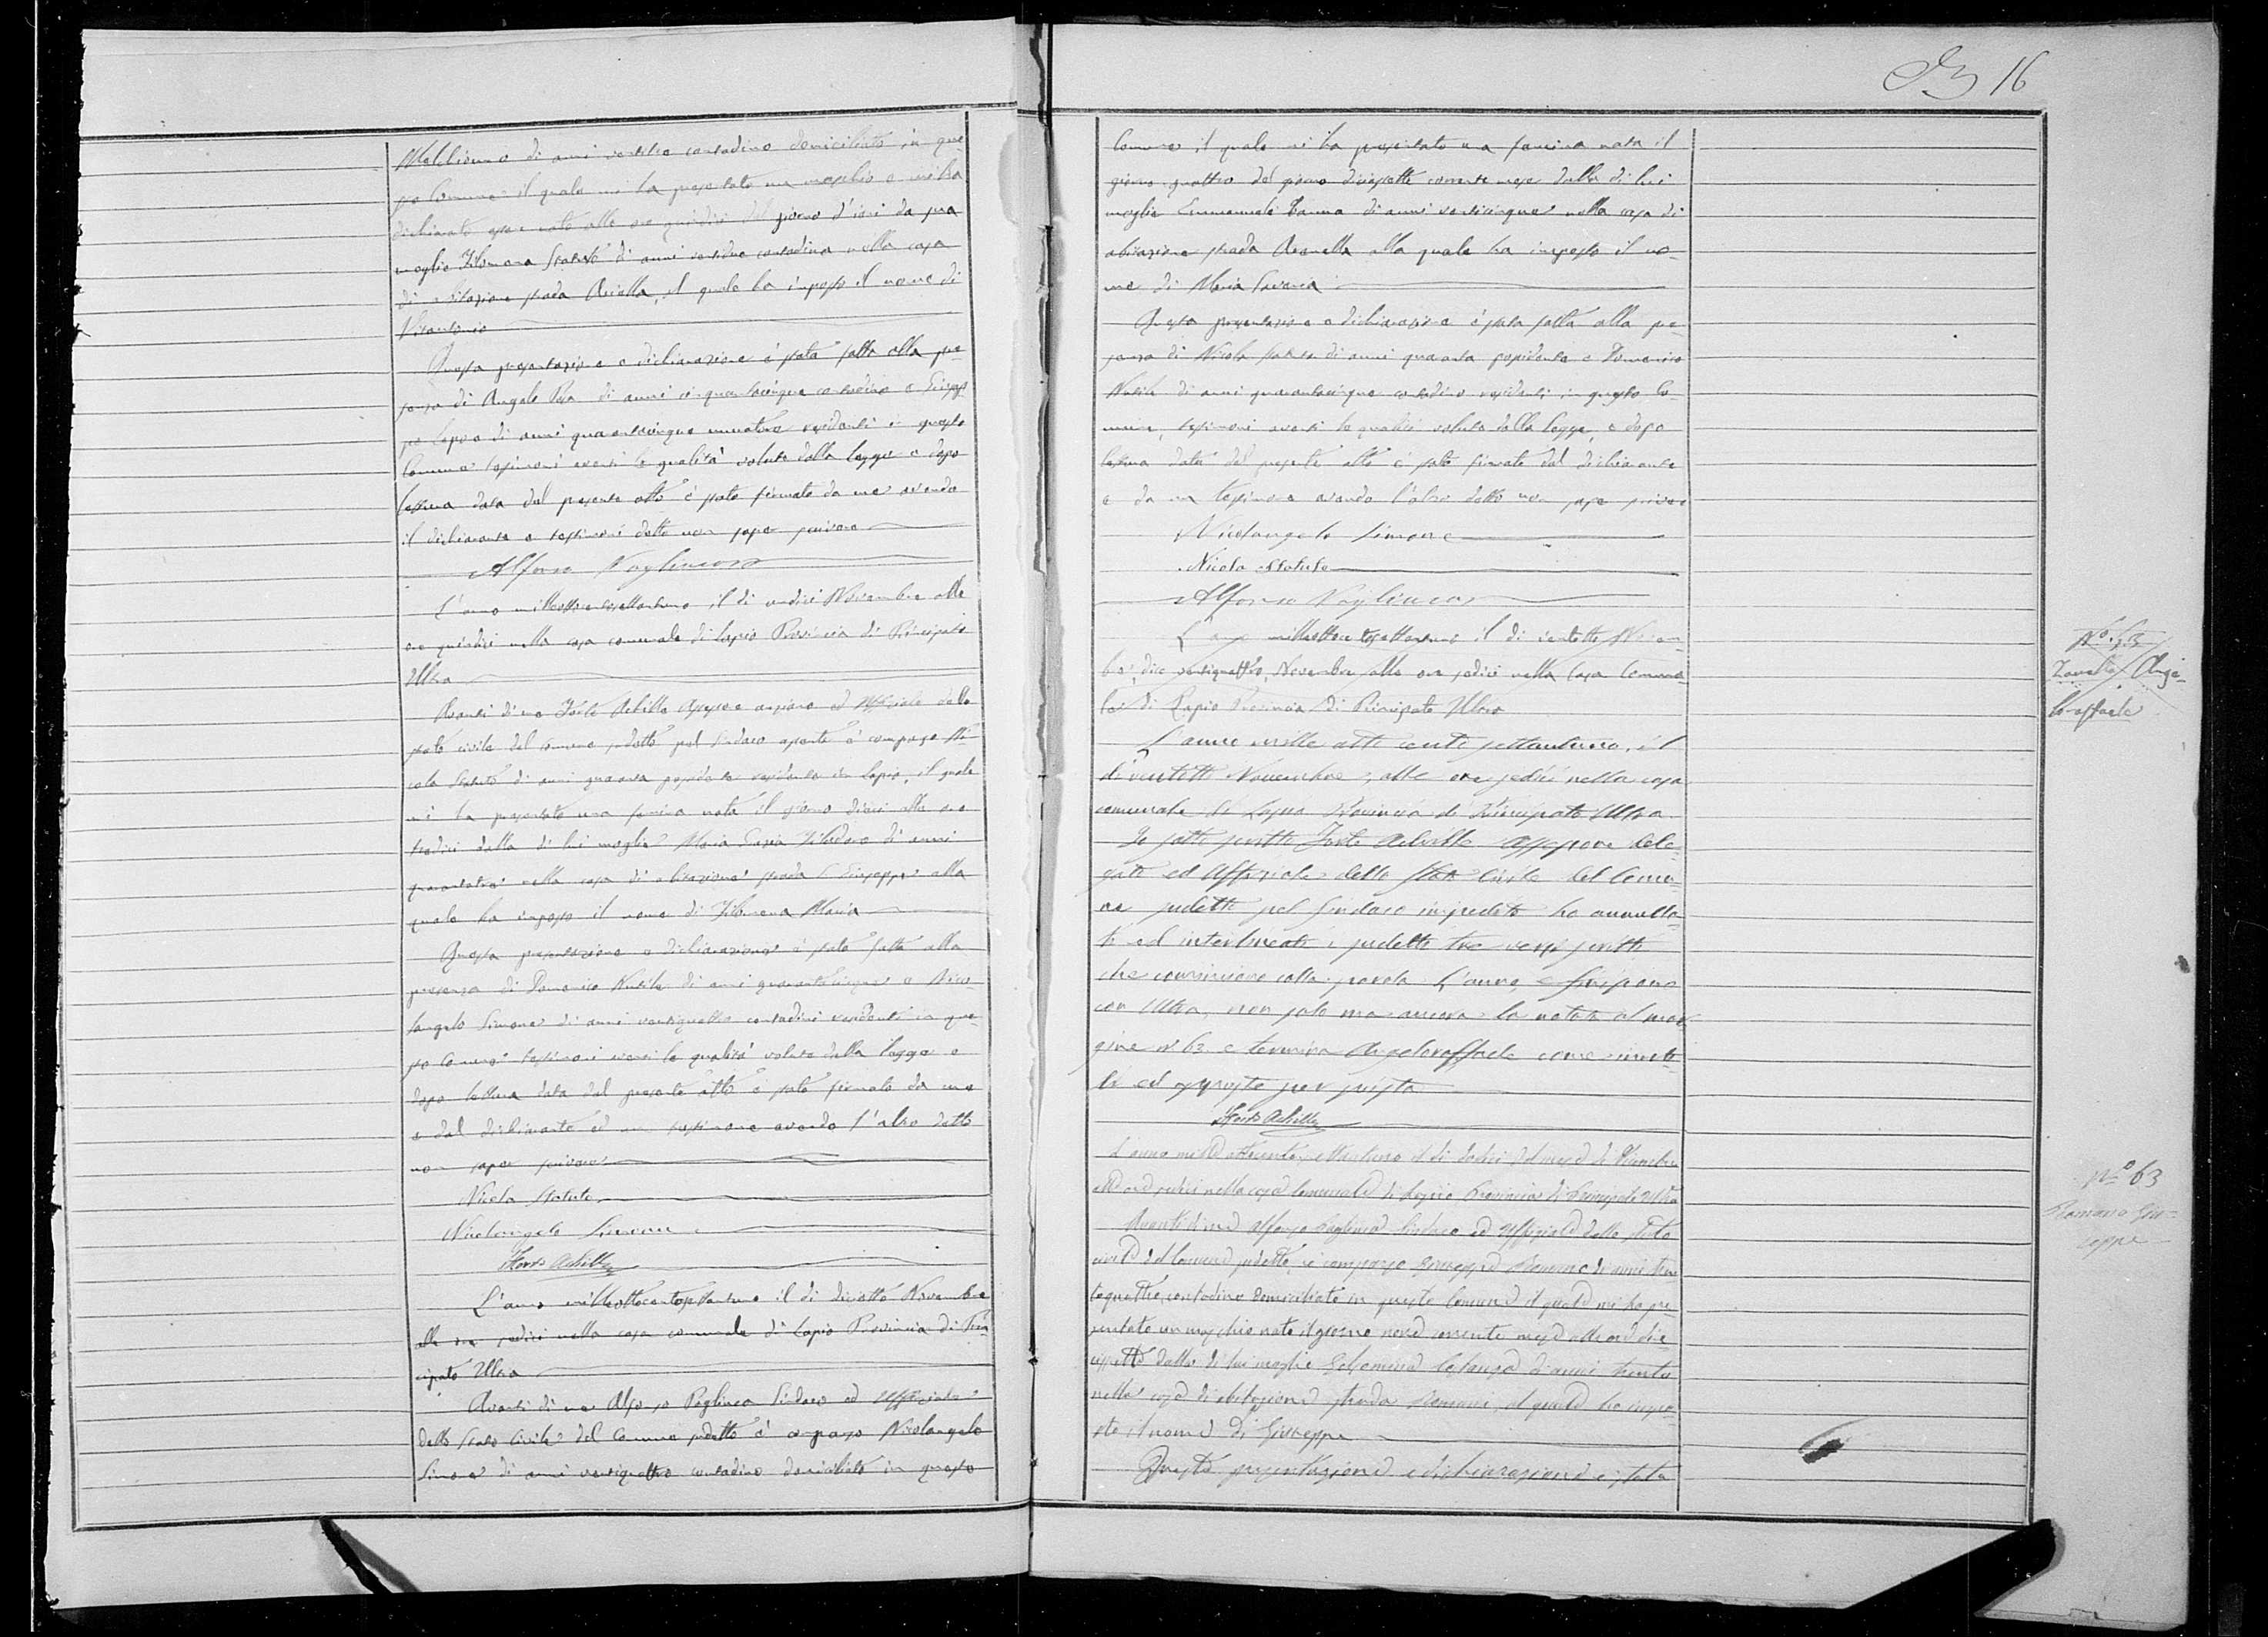 di anni ventitre contadino domiciliato in que-
sto Comune il quale mi ha presentato un maschio e mi ha
dichiarato esser nato alle ore quindici del giorno d'ieri da sua
moglie Filomena Statuto di anni ventidue contadina nella casa
di abitazione strada Arialla, al quale ha imposto il nome di
Vitantonio
Questa presentazione e dichiarazione è stata fatta alla pre-
senza di Angelo di anni cinquantacinque contadino e Giusep-
pe di anni quarantacinque residenti in questo
Comune testimoni aventi le qualità volute dalla legge e dopo
lettura data del presente atto è stato firmato da me avendo
il dichiarante e testimoni detto non saper scrivere
Alfonso Pagliuca
L'anno milleottocentosettantuno il dì undici Novembre alle
ore quindici nella casa comunale di Lapio Provincia di Principato
Ultra
Avanti di me Forte Achille Assessore anziano ed Uffiziale dello
stato civile del Comune sudetto pel Sindaco assente è comparso Ni-
cola Statuto di anni quaranta possidente residente in Lapio, il quale
mi ha presentato una femina nata il giorno dieci alle ore
tredici dalla di lui moglie Maria Grazia Filadoro di anni
quarantatre nella casa di abitazione strada S. Giuseppe alla
quale ha imposto il nome di Filomena Maria
Questa presentazione e dichiarazione è stata fatta alla
presenza di Domenico di anni quarantacinque e Nico-
langelo Simone di anni ventiquattro contadini residenti in que-
sto Comune testimoni aventi le qualità volute dalla legge e
dopo lettura data del presente atto è stato firmato da me
e dal dichiarante ed un testimone avendo l'altro detto
non saper scrivere
Nicola Statuto
Nicolangelo Simone
Forte Achille
L'anno milleottocentosettantuno il dì diciotto Novembre
alle ore sedici nella casa comunale di Lapio Provincia di Prin-
cipato Ultra
Avanti di me Alfonso Pagliuca Sindaco ed Uffiziale
dello Stato Civile del Comune sudetto è comparso Nicolangelo
Simone di anni ventiquattro contadino domiciliato in questo
16
Comune il quale mi ha presentato una femina nata il
giorno quattro del giorno diciassette corrente mese dalla di lui
moglie Emmanuela Zanna di anni venticinque nella casa di
abitazione strada Arenella alla quale ha imposto il no-
me di Maria
Questa presentazione e dichiarazione è stata fatta alla pre-
senza di Nicola Statuto di anni quaranta possidente e Domenico
di anni quarantacinque contadino residenti in questo Co-
mune, testimoni aventi le qualità volute dalla legge, e dopo
lettura data del presente atto è stato firmato dal dichiarante
e da un testimone avendo l'altro detto non saper scrivere
Nicolangelo Simone
Nicola Statuto
Alfonso Pagliuca
L'anno milleottocentosettantuno il dì ventotto Novem-
bre, dico ventiquattro, Novembre alle ore sedici nella Casa Comuna-
le di Lapio Provincia di Principato Ultra
L'anno mille otto cento settantuno, il
dì ventotto Novembre, alle ore sedici nella casa
comunale di Lapio Provincia di Principato Ultra.
Io sotto scritto Forte Achille Assessore dele-
gato ed Uffiziale dello Stato Civile del Comu-
ne sudetto pel Sindaco impedito ho annulla-
ti ed interlineati i sudetti tre versi scritti
che cominciano colla parola L'anno, e finiscono
con Ultra, non solo ma ancora la nota al mar-
gine n° 63 e termina Angeloraffaele come inuti-
li ed apposte per svista
Forte Achille
L'anno mille ottocento settantuno il dì dodici del mese di Novembre
alle ore sedici nella casa Comunale di Lapio Provincia di Principato Ultra
Avanti di me Alfonso Pagliuca Sindaco ed Uffiziale dello Stato
civile del Comune sudetto, è comparso Giuseppe Romano di anni tren-
taquattro, contadino domiciliato in questo Comune il quale mi ha pre-
sentato un maschio nato il giorno nove corrente mese alle ore die-
cissette dalla di lui moglie Gelsomina Costanza di anni trenta
nella casa di abitazione strada Romani, al quale ha impo-
sto il nome di Giuseppe
Questa presentazione e dichiarazione è stata
N° 63
Angi-
loraffaele
N° 63
Romano Giu-
seppe